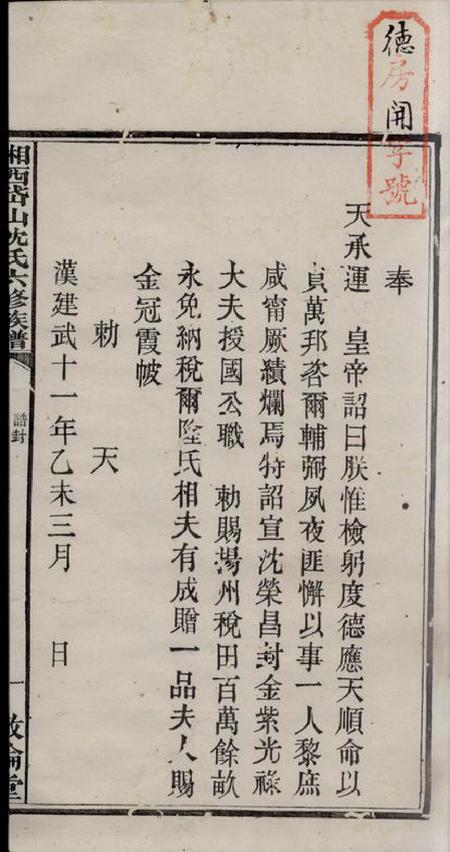 德房開字號
奉
天承運 皇帝詔曰朕惟檢躬度德應天順命以
貞萬邦咨爾輔弼夙夜匪懈以事一人黎庶
咸甯厥績爛焉特詔宣沈榮昌封金紫光祿
大夫授國公職 勅賜揚州稅田百萬餘畝
永免納稅爾陸氏相夫有成贈一品夫人賜
金冠霞帔
勅 天
漢建武十一年乙未三月 日
湘西岱山沈氏六修族譜
誥封
一 敘倫堂